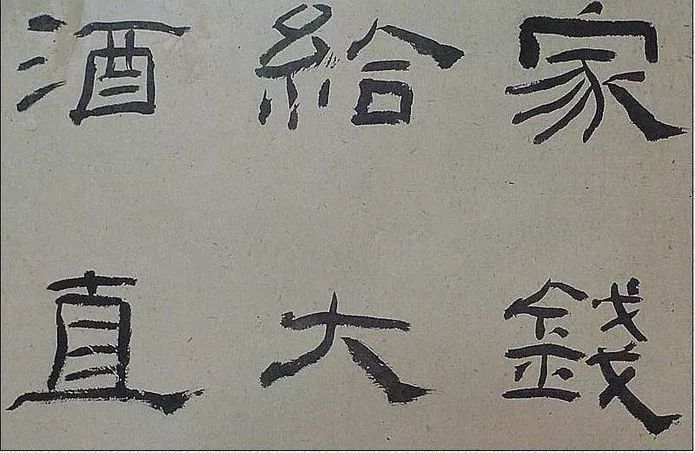 家錢
給大
酒直